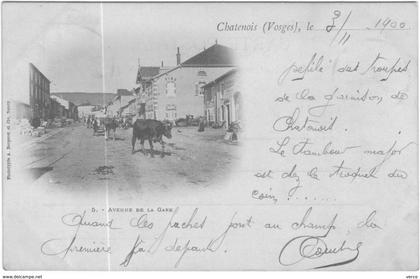 Chatenois (Vosges), le 9/11 1900
défilé des troupes
de la garnison de
Chatenois.
Le tambour major
est de la troquer du
coin,......
5. - AVENUE DE LA GARE
Quant les vaches vont au champ, la
première va devant
Phototypie A. Bergeret et Cie, Nancy
delcampe.net